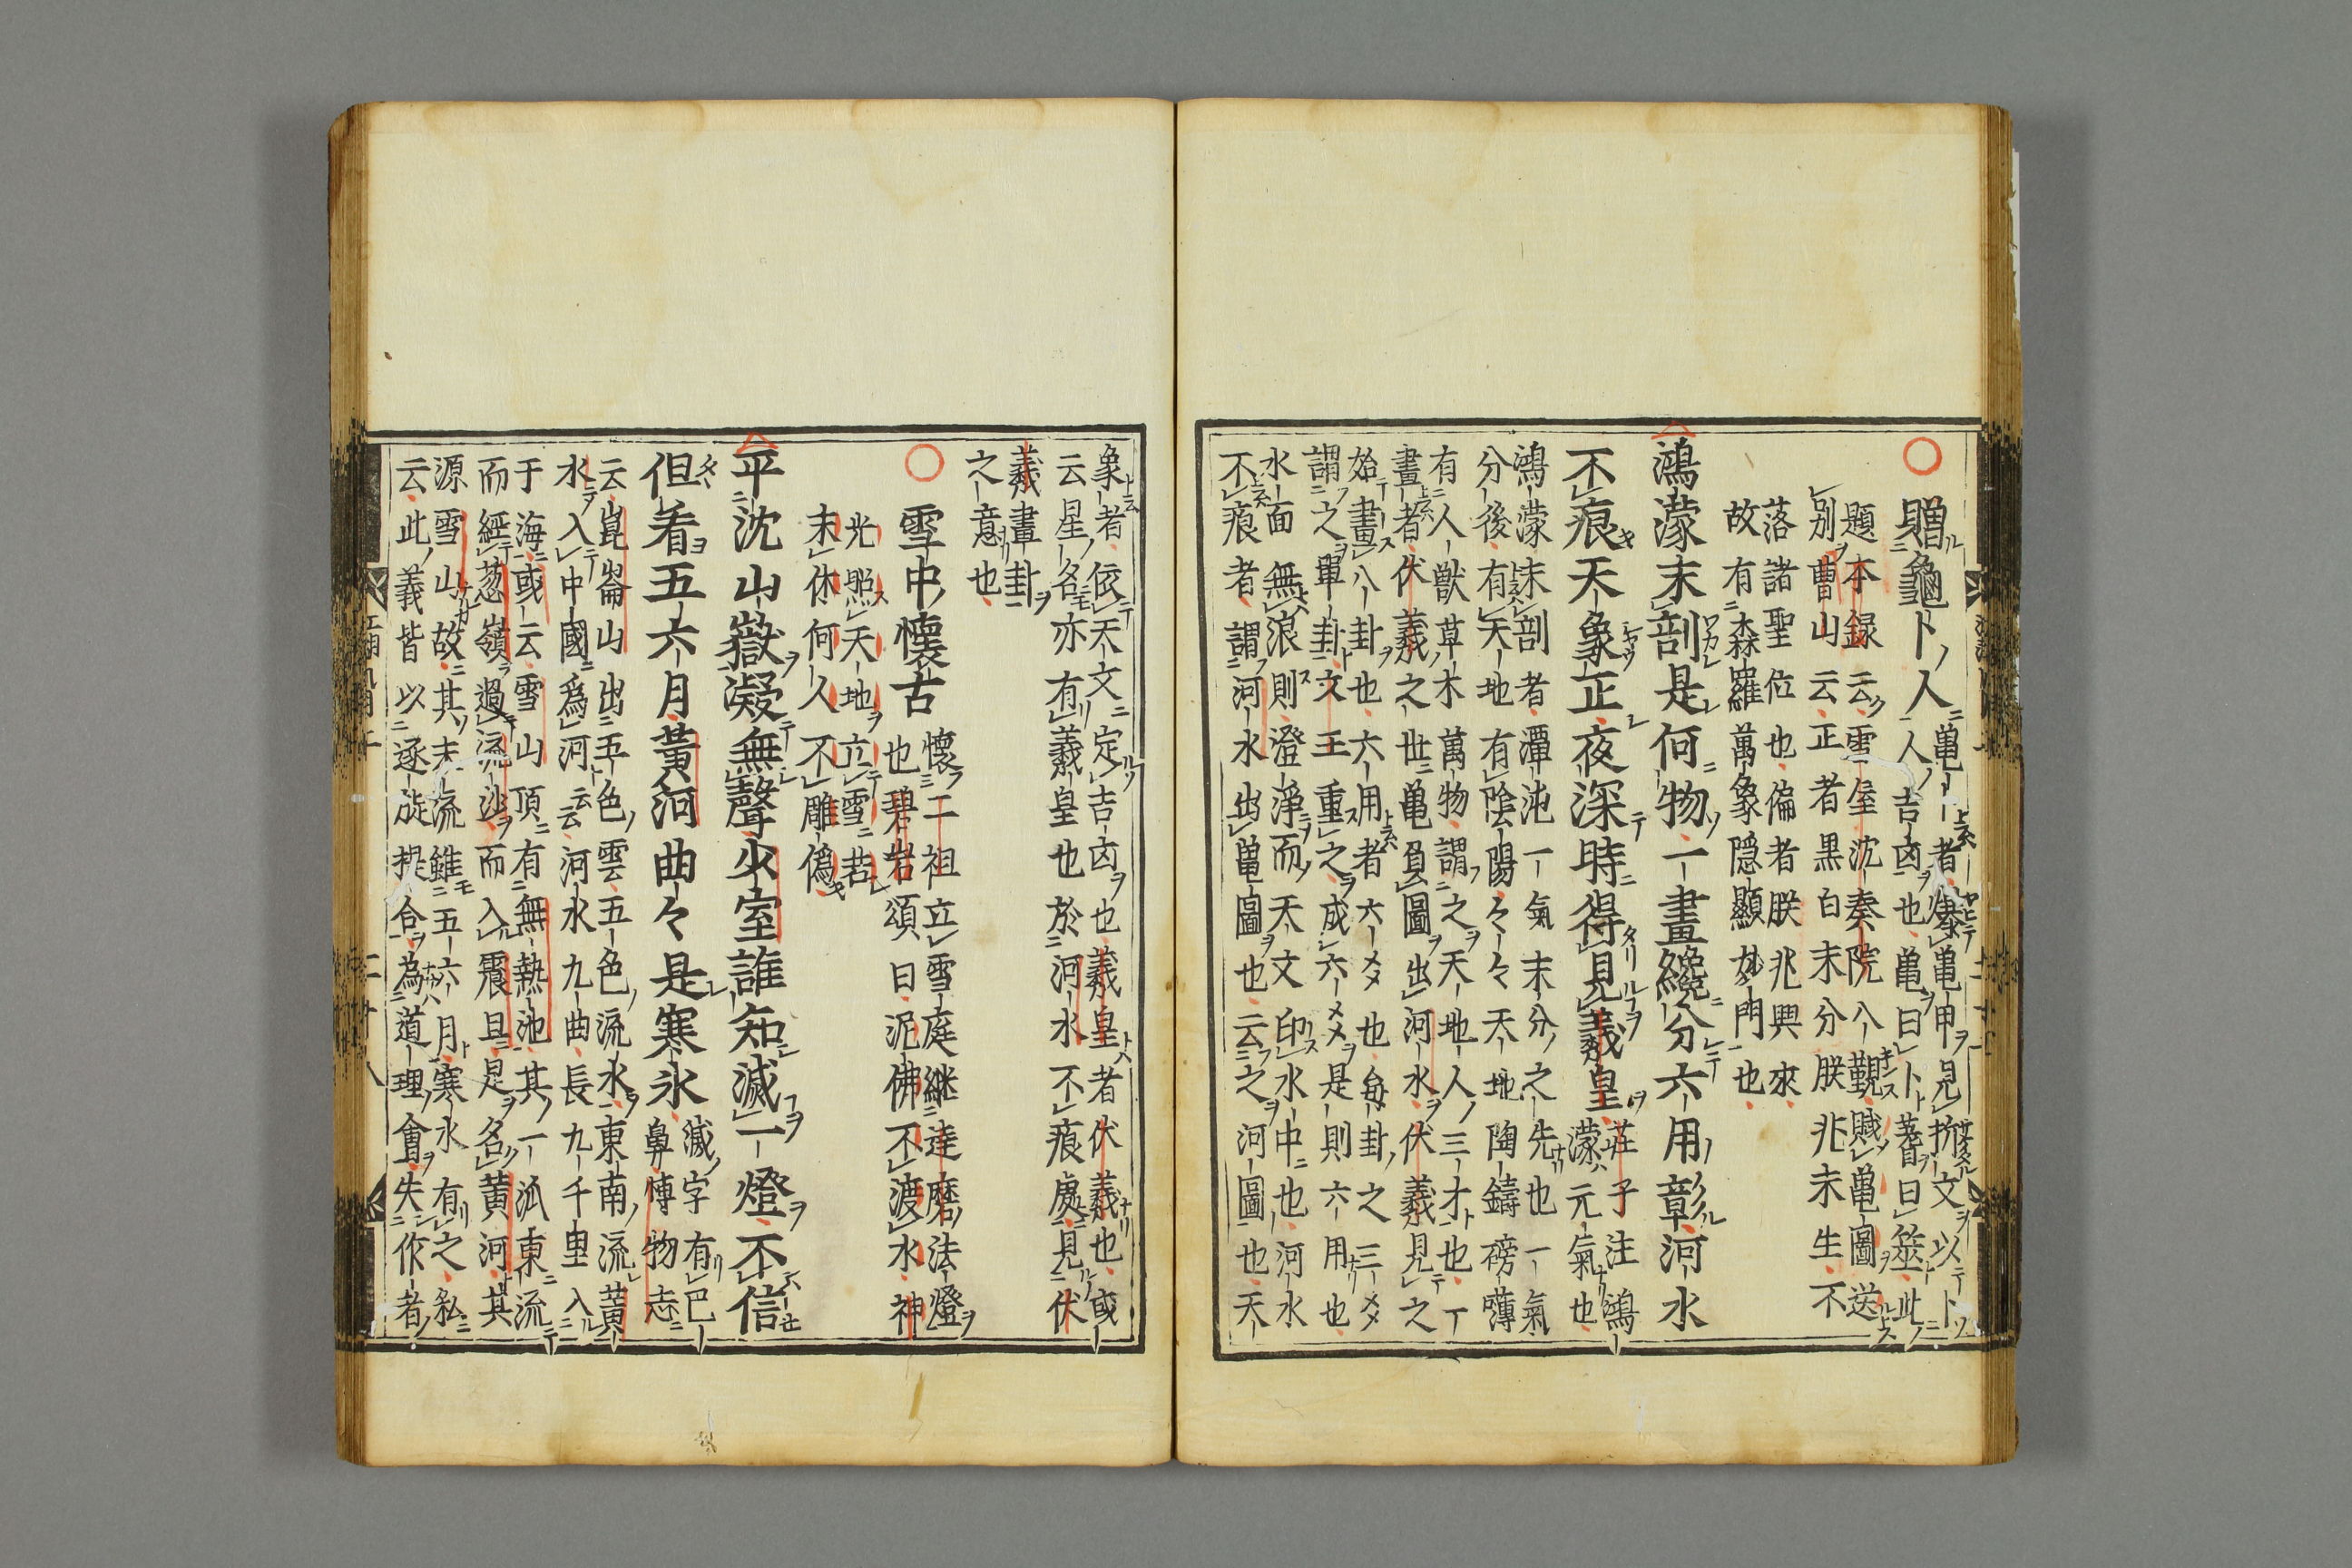 贈龜卜人
亀ー者爆亀甲見拆文以卜
人吉凶也亀曰卜蓍曰筮此
題本録云雪屋沈奏院入覲賦亀圖送
別曹山云正者黒白未分朕兆未生不
落諸聖位也偏者朕兆興來
故有森羅萬象隠顯妙門也
鴻濛未剖是何物一畫纔分六用彰河水
不痕天象正夜深時得見羲皇
荘子注鴻ー
濛元氣也
鴻ー濛未剖者渾沌一氣未分之先也一氣
分後有天地有陰陽々々天地陶鑄磅礴
有人獣草木萬物謂之天地人三才也丁
畫者伏羲之世亀負圖出河水伏羲見之
始畫八卦也六用者六爻也毎卦之三爻
謂之單卦文王重之成六爻是則六用也
水面無浪則澄淨而天文印水中也河水
不痕者謂河水出亀圖也云之河圖也天ー
象者依天文定吉凶也羲皇者伏羲也或
云星名亦有羲皇也於河水不痕處見伏
羲畫卦
之意也
雪中懐古
懐二祖立雪庭継達磨法燈
也碧岩頌曰泥佛不渡水神
光照天地立雪若
未休何人不雕偽
平沈山嶽凝無聲少室誰知滅一燈不信
但看五六月黄河曲々是寒氷
滅字有巴ー
鼻博物志
云崑崙山出五色雲五色流水東南流黄
水入中國為河云云河水九曲長九千里入
于海或云雪山頂有無熱池其一派東流
而經葱嶺過流沙而入震旦是名黄河其
源雪山故其末流雖五六月寒氷有之私
云此義皆以逐旋捏合為道理會失作者